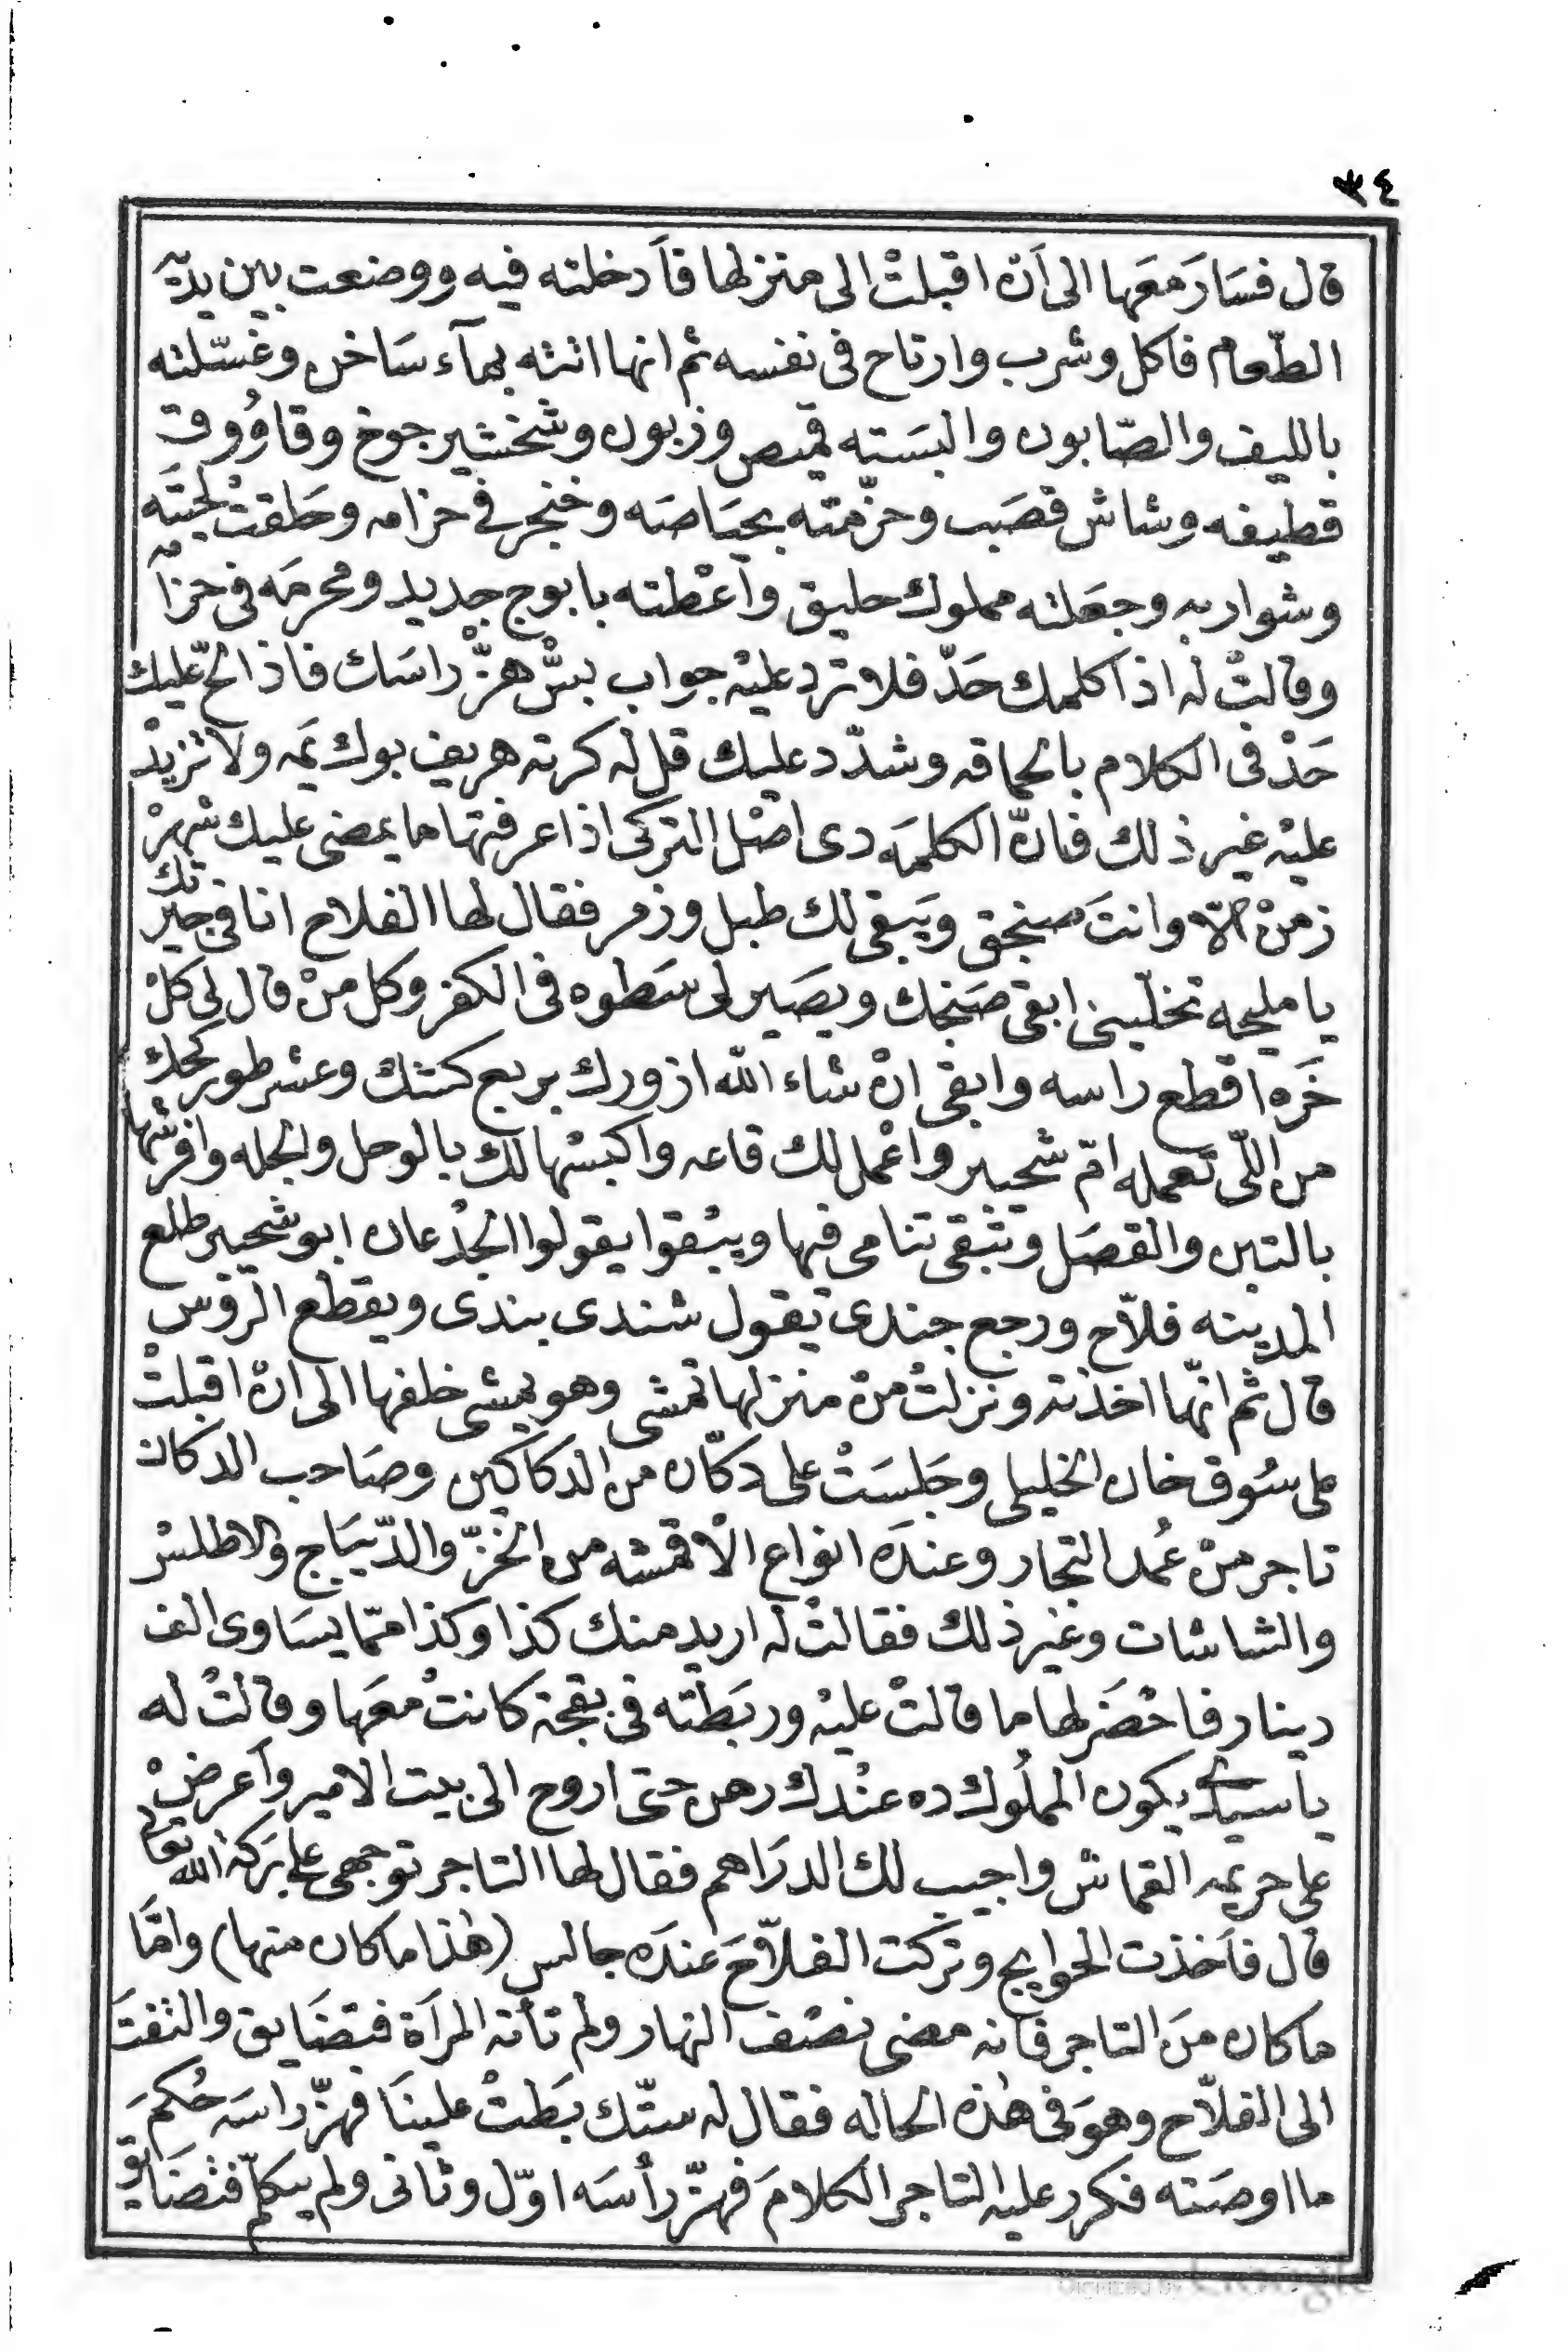 ٣٤
قال فسَارَ معَها الى اَنّ اقبلتْ الى منزلها فاَدخلته فيه ووضعت بين يديّه
الطّعام فاكل وشرب وارتاح فى نفسه ثم انها اتته بمآء سَاخن وغسّلته
بالليف والصّابون والبسَته قميص وزبون وشخشير جوخ وقاوُوق
قطيفه وشاش قصَب وحزّمته بحيَاصَه وخنجر فى حزامه وحَلقتْ لحيَته
وشواربه وجعَلته مملوك حليق واَعْطته بابوج جديد ومحرمَه فى حزامه
وقالتْ لُه اذا كلمك حَدّ فلا ترد عليْه جواب بسْ هزّ راسَك فاذا لحّ عليك
حَدْ فى الكلام بالحماقه وشدّد عليك قل لُه كرته هريف بوك يَمه ولا تزيدْ
عليْه غير ذلك فانّ الكلمَه دى اصْل التركى اذا عرفتها ما يمضى عليك شهرْ
زمنْ الاّ وانتَ صنجق ويَبقى لك طبل وزمر فقال لها الفلاح انا فى جيرتك
يا مليحه تخلّينى ابقى صَنجك ويصَير لى سَطوه فى الكفر وكل منْ قال لى كلْ
خَره اقطع راسه وابقى انْ شاء الله ازورك بربع كشك وعشر طور كحك
من اللّى تعمله امّ شحيبر واعْمل لك قاعه واكبسْها لك بالوحل والجله وافرشها
بالتبن والقصَل وتبْقى تنامى فيها ويبْقوا يقولوا الجُدْعان ابو شحيبر طلع
المدينه فلاّح ورجع جندى يقول شندى بندى ويقطع الرّوس
قال ثم انّها اخذته ونزلتْ منْ منزلها تمشى وهو يمشى خلفها الى انْ اقبلتْ
على سُوق خان الخليلى وجَلسَتْ على دكّان من الدكاكين وصَاحب الدكان
تاجر منْ عُمد التجار وعندَه انواع الاْقمشه من الخزّ والدّيبَاج والاطلسْ
والشاشات وغير ذلك فقالتْ لُه اريد منك كذا وكذا ممّا يسَاوى الف
دينار فاحْضَر لها ما قالتْ عليْه وربَطَته فى بقجة كانتْ معَها وقالتْ له
يا سيدى يكون المملُوك ده عنْدك رهن حتى اروح الى بيت الامير واَعرضْ
على حريمه القماش واجيب لك الدرَاهم فقال لها التاجر توجهى على بَركة الله تعالى
قال فاَخذت الحوايج وتركت الفلاّحَ عندَه جالس (هٰذا ما كان منها) وامَّا
ما كان منَ التاجر فانه مضى نصْف النهار ولم تأته المرآة فتضَايق والتفتَ
الى الفلاّح وهوَ فى هٰذه الحاله فقال له ستّك بَطتْ علينَا فهزّ راسَه حُكمَ
ما اوصَته فكرر عليه التاجر الكلامَ فهزّ رأسَه اوّل وثانى ولم يتكلّم فتضَايق